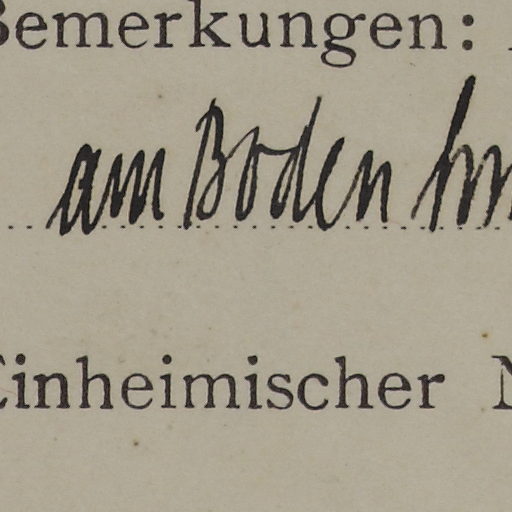 Bemerkungen:
am Boden
Einheimischer